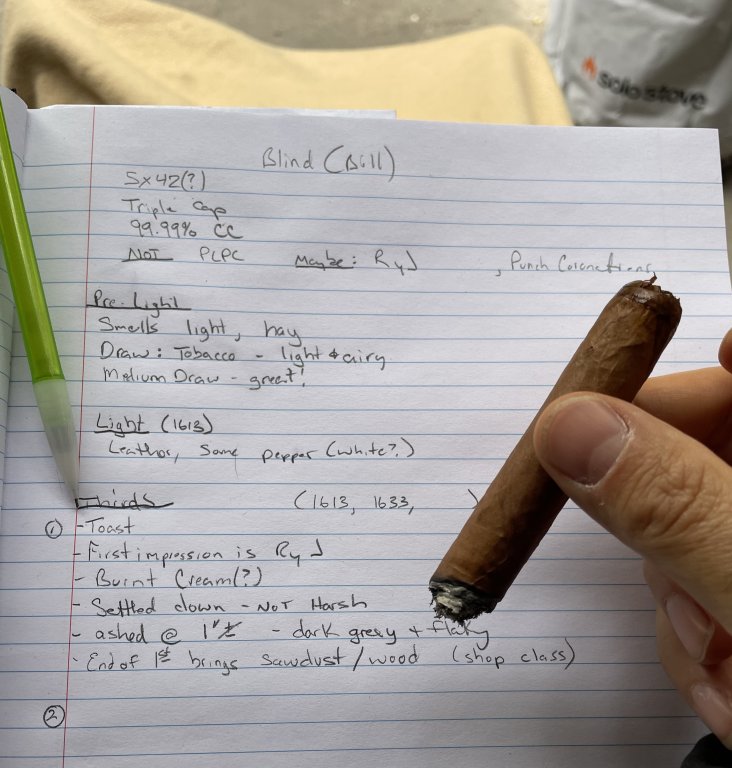 solo stove
Blind (Bill)
5x42(?)
Triple Cap
99.99% CC
NOT PLPC Maybe: RyJ , Punch Coronations,
Pre-Light
Smells light, hay
Draw: Tobacco - light & airy
Medium Draw - great!
Light (1613)
Leather, some pepper (white?)
Thirds (1613, 1633, )
① - Toast
- First impression is RyJ
- Burnt Cream(?)
- Settled down - NOT Harsh
- ashed @ 1" - dark grey + flaky
- End of 1st brings sawdust/wood (shop class)
②